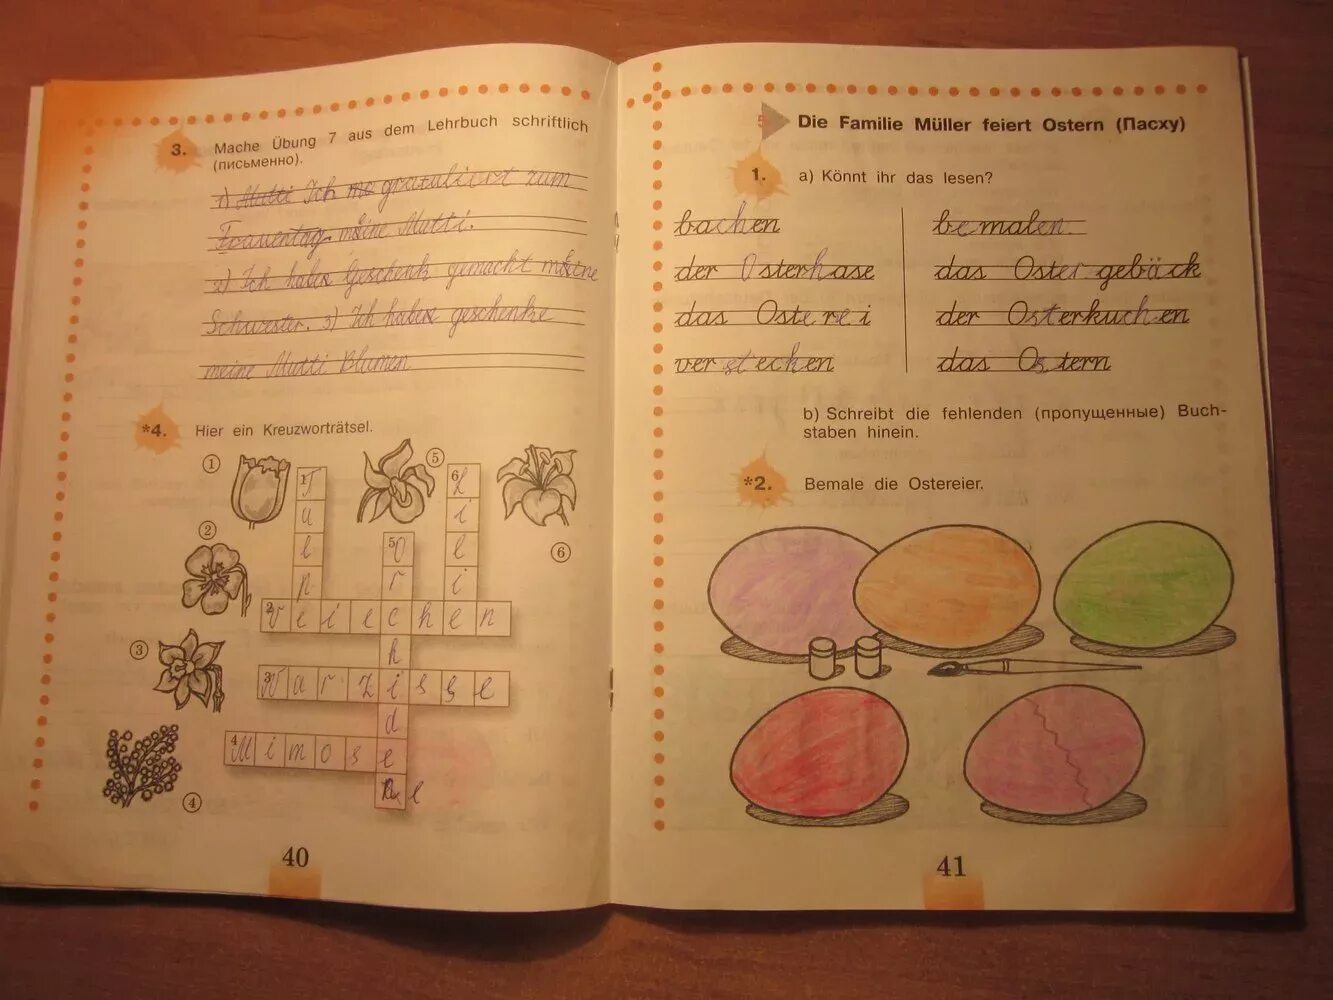 3. Mache Übung 7 aus dem Lehrbuch schriftlich
(письменно).
1) Mutti Ich gratuliert zum
Frauentag meine Mutti.
2) Ich habe Geschenk gemacht meine
Schwester. 3) Ich habe geschenke
meine Mutti Blumen
*4. Hier ein Kreuzworträtsel.
1
2
3
4
5
6
1 Tulpe
2 Veiechen
3 Narzisse
4 Mimose
5 Orchidee
6 Lilie
40
5
Die Familie Müller feiert Ostern (Пасху)
1. a) Könnt ihr das lesen?
backen bemalen
der Osterhase das Ostergebäck
das Osterei der Osterkuchen
verstecken das Ostern
b) Schreibt die fehlenden (пропущенные) Buch-
staben hinein.
*2. Bemale die Ostereier.
41